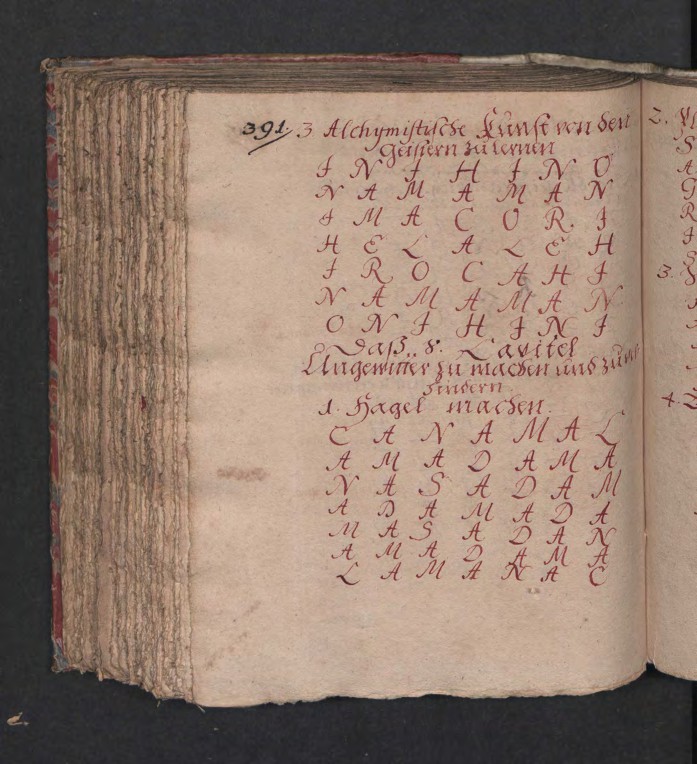 391. 3 Alchymistische Kunst von den
Geistern zu lernen
I N I H I N O
N A M A M A N
I M A C O R. I
H E L A L E H
I R O C A H I
N A M A M A N.
O N I H I N I
Daß 8. Capitel
Ungewitter zu machen und zu ver
hindern.
1. Hagel machen.
C A N A M A L
A M A D A M A
N A S A D A M
A D A M A D A
M A S A D A N
A M A D A M A
L A M A N A C
2.
3.
4.